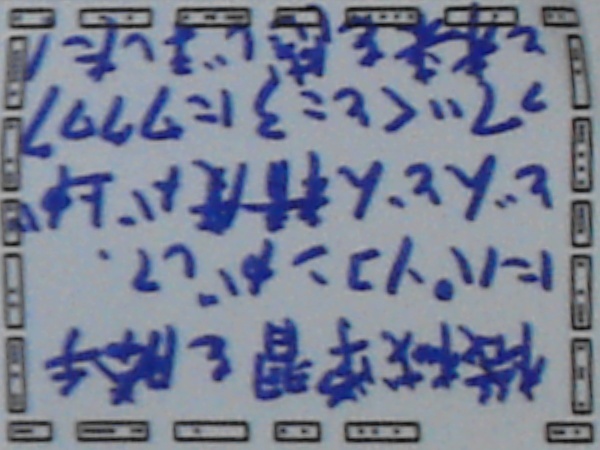 機械学習を勝手
にパソコンがして、
どんどん精度が上が
っていくところにワクワク
と未来を感じました！